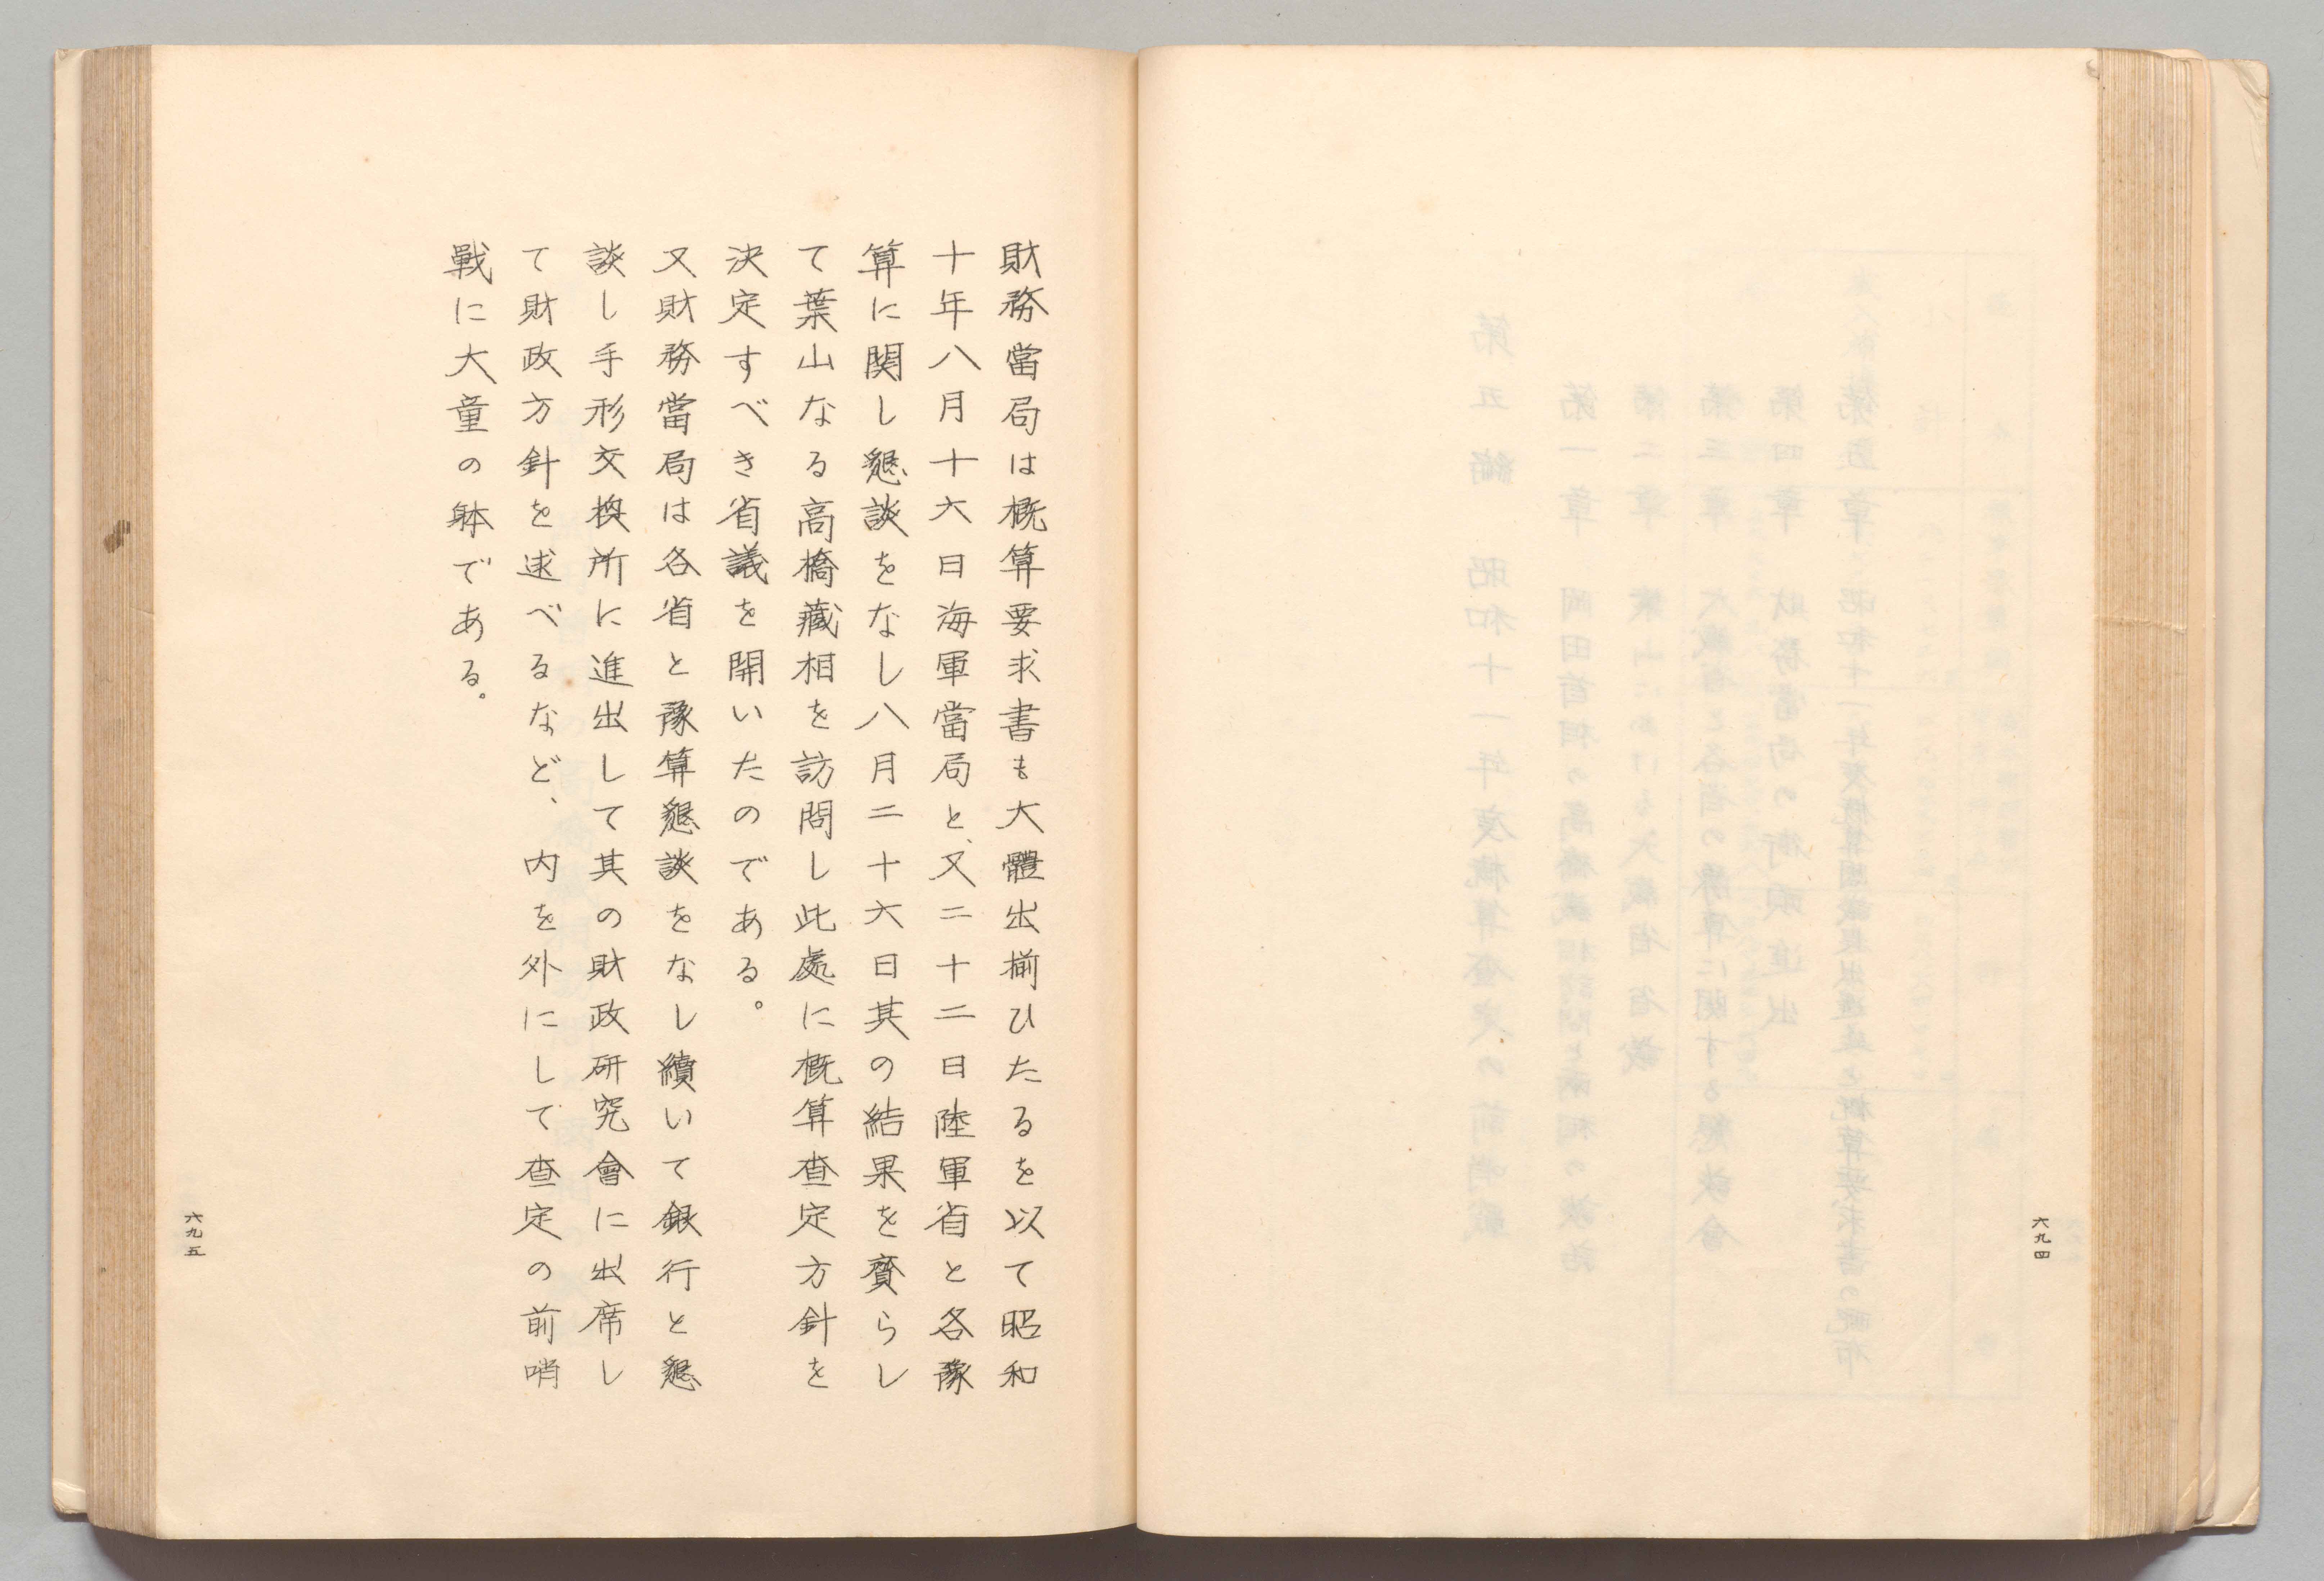 六九四
財務當局は概算要求書も大體出揃ひたるを以て昭和
十年八月十六日海軍當局と、又二十二日陸軍省と各豫
算に関し懇談をなし八月二十六日其の結果を齎らし
て葉山なる高橋藏相を訪問し此處に概算査定方針を
決定すべき省議を開いたのである。
又財務當局は各省と豫算懇談をなし續いて銀行と懇
談し手形交換所に進出して其の財政研究會に出席し
て財政方針を述べるなど、内を外にして査定の前哨
戰に大童の躰である。
六九五